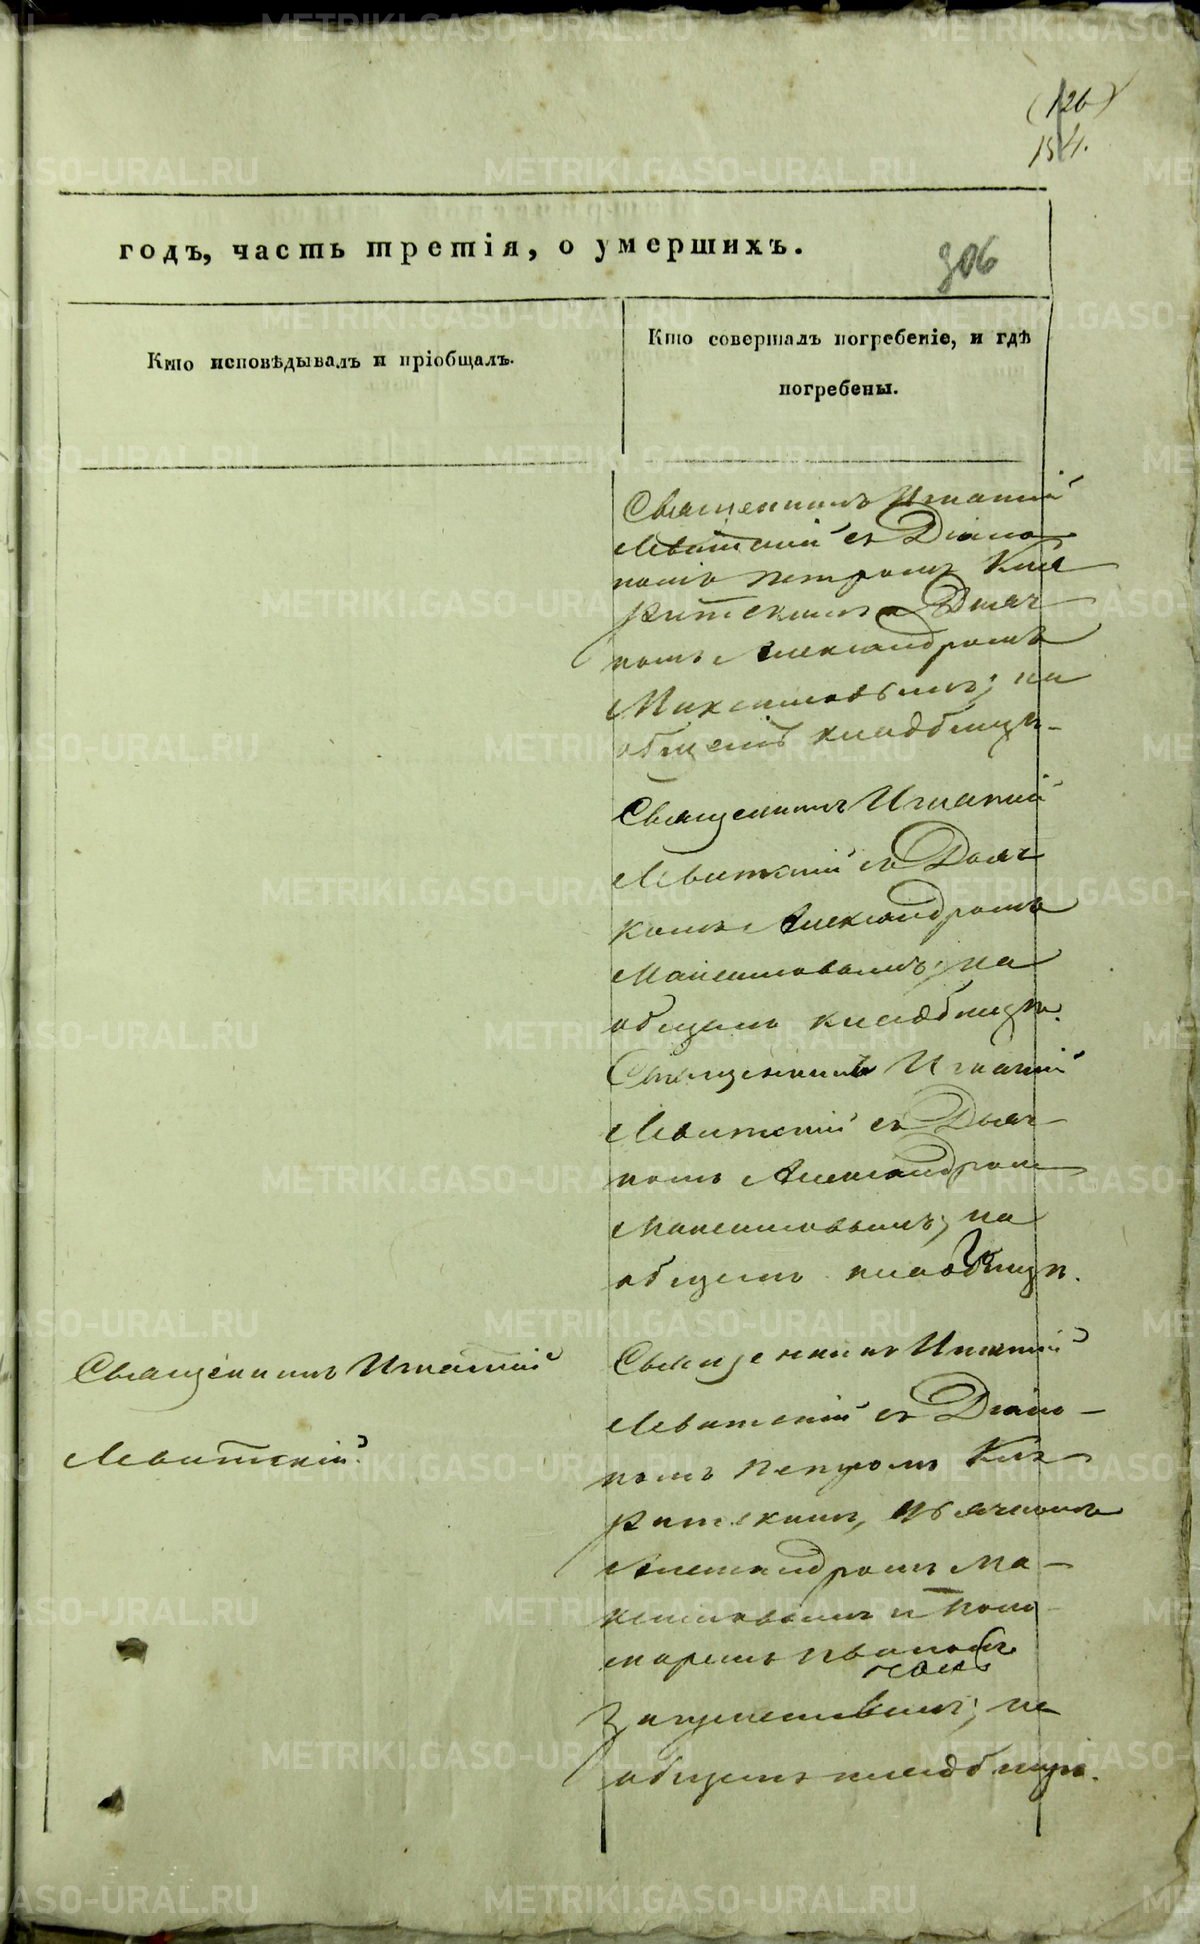 (126)
154.
годъ, часть третія, о умершихъ.
306
Кто исповѣдывалъ и пріобщалъ.
Кто совершалъ погребеніе, и гдѣ
погребены.
Священникъ Игнатій
Левитскій съ Діако-
номъ Петромъ
и Дьяч-
комъ Александромъ
Максимовымъ; на
общемъ кладбищѣ.
Священникъ Игнатій
Левитскій съ Дьяч
комъ Александромъ
Максимовымъ; на
общемъ кладбищѣ.
Священникъ Игнатій
Левитскій съ Дьяч-
комъ Александром
Максимовымъ; на
общемъ кладбищѣ.
Священникъ Игнатій
Левитскій.
Священникъ Игнатій
Левитскій съ Діако-
номъ Петромъ
Дьячкомъ
Александромъ Ма-
ксимовымъ и Поно-
маремъ
на
общемъ кладбищѣ.
METRIKI.GASO-URAL.RU